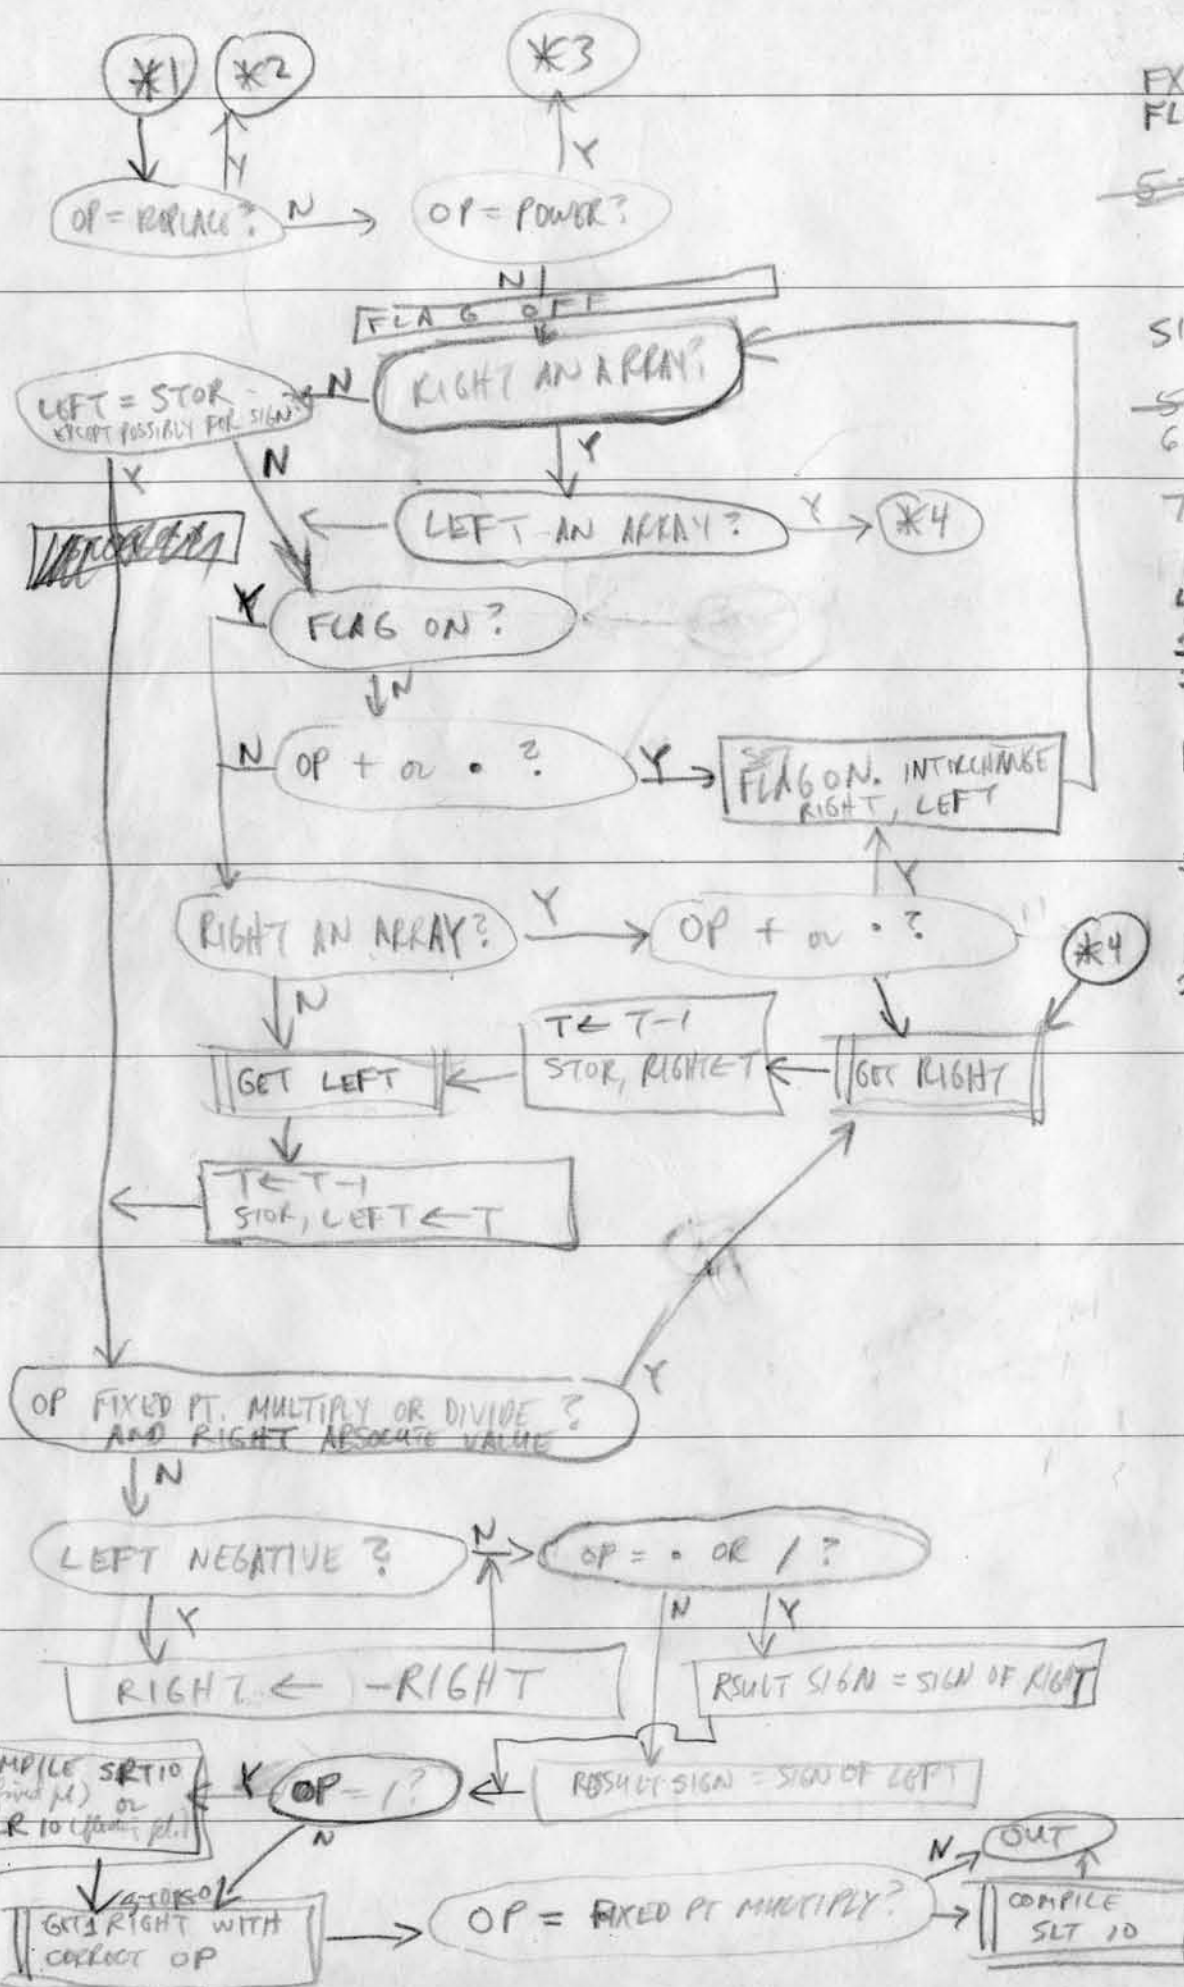 *1
*2
*3
FX
FL
Y
Y
OP = REPLACE?
N
OP = POWER?
N
FLAG OFF
SI
RIGHT AN ARRAY?
N
LEFT = STOR
EXCEPT POSSIBLY FOR SIGN
6
Y
N
Y
7
LEFT AN ARRAY?
Y
*4
Y
FLAG ON?
N
N
OP + or • ?
Y
SET
FLAG ON. INTERCHANGE
RIGHT, LEFT
Y
RIGHT AN ARRAY?
Y
OP + or • ?
*4
N
T ← T-1
STOR, RIGHT ← T
GET LEFT
GET RIGHT
T ← T-1
STOR, LEFT ← T
Y
OP FIXED PT. MULTIPLY OR DIVIDE ?
AND RIGHT ABSOLUTE VALUE
N
LEFT NEGATIVE ?
N
OP = • OR / ?
Y
N
Y
RIGHT ← -RIGHT
RSULT SIGN = SIGN OF RIGHT
MPILE SRT10
or
R 10
Y
OP = / ?
RESULT SIGN = SIGN OF LEFT
N
N
OUT
GET1 RIGHT WITH
CORRECT OP
OP = FIXED PT MULTIPLY?
COMPILE
SLT 10